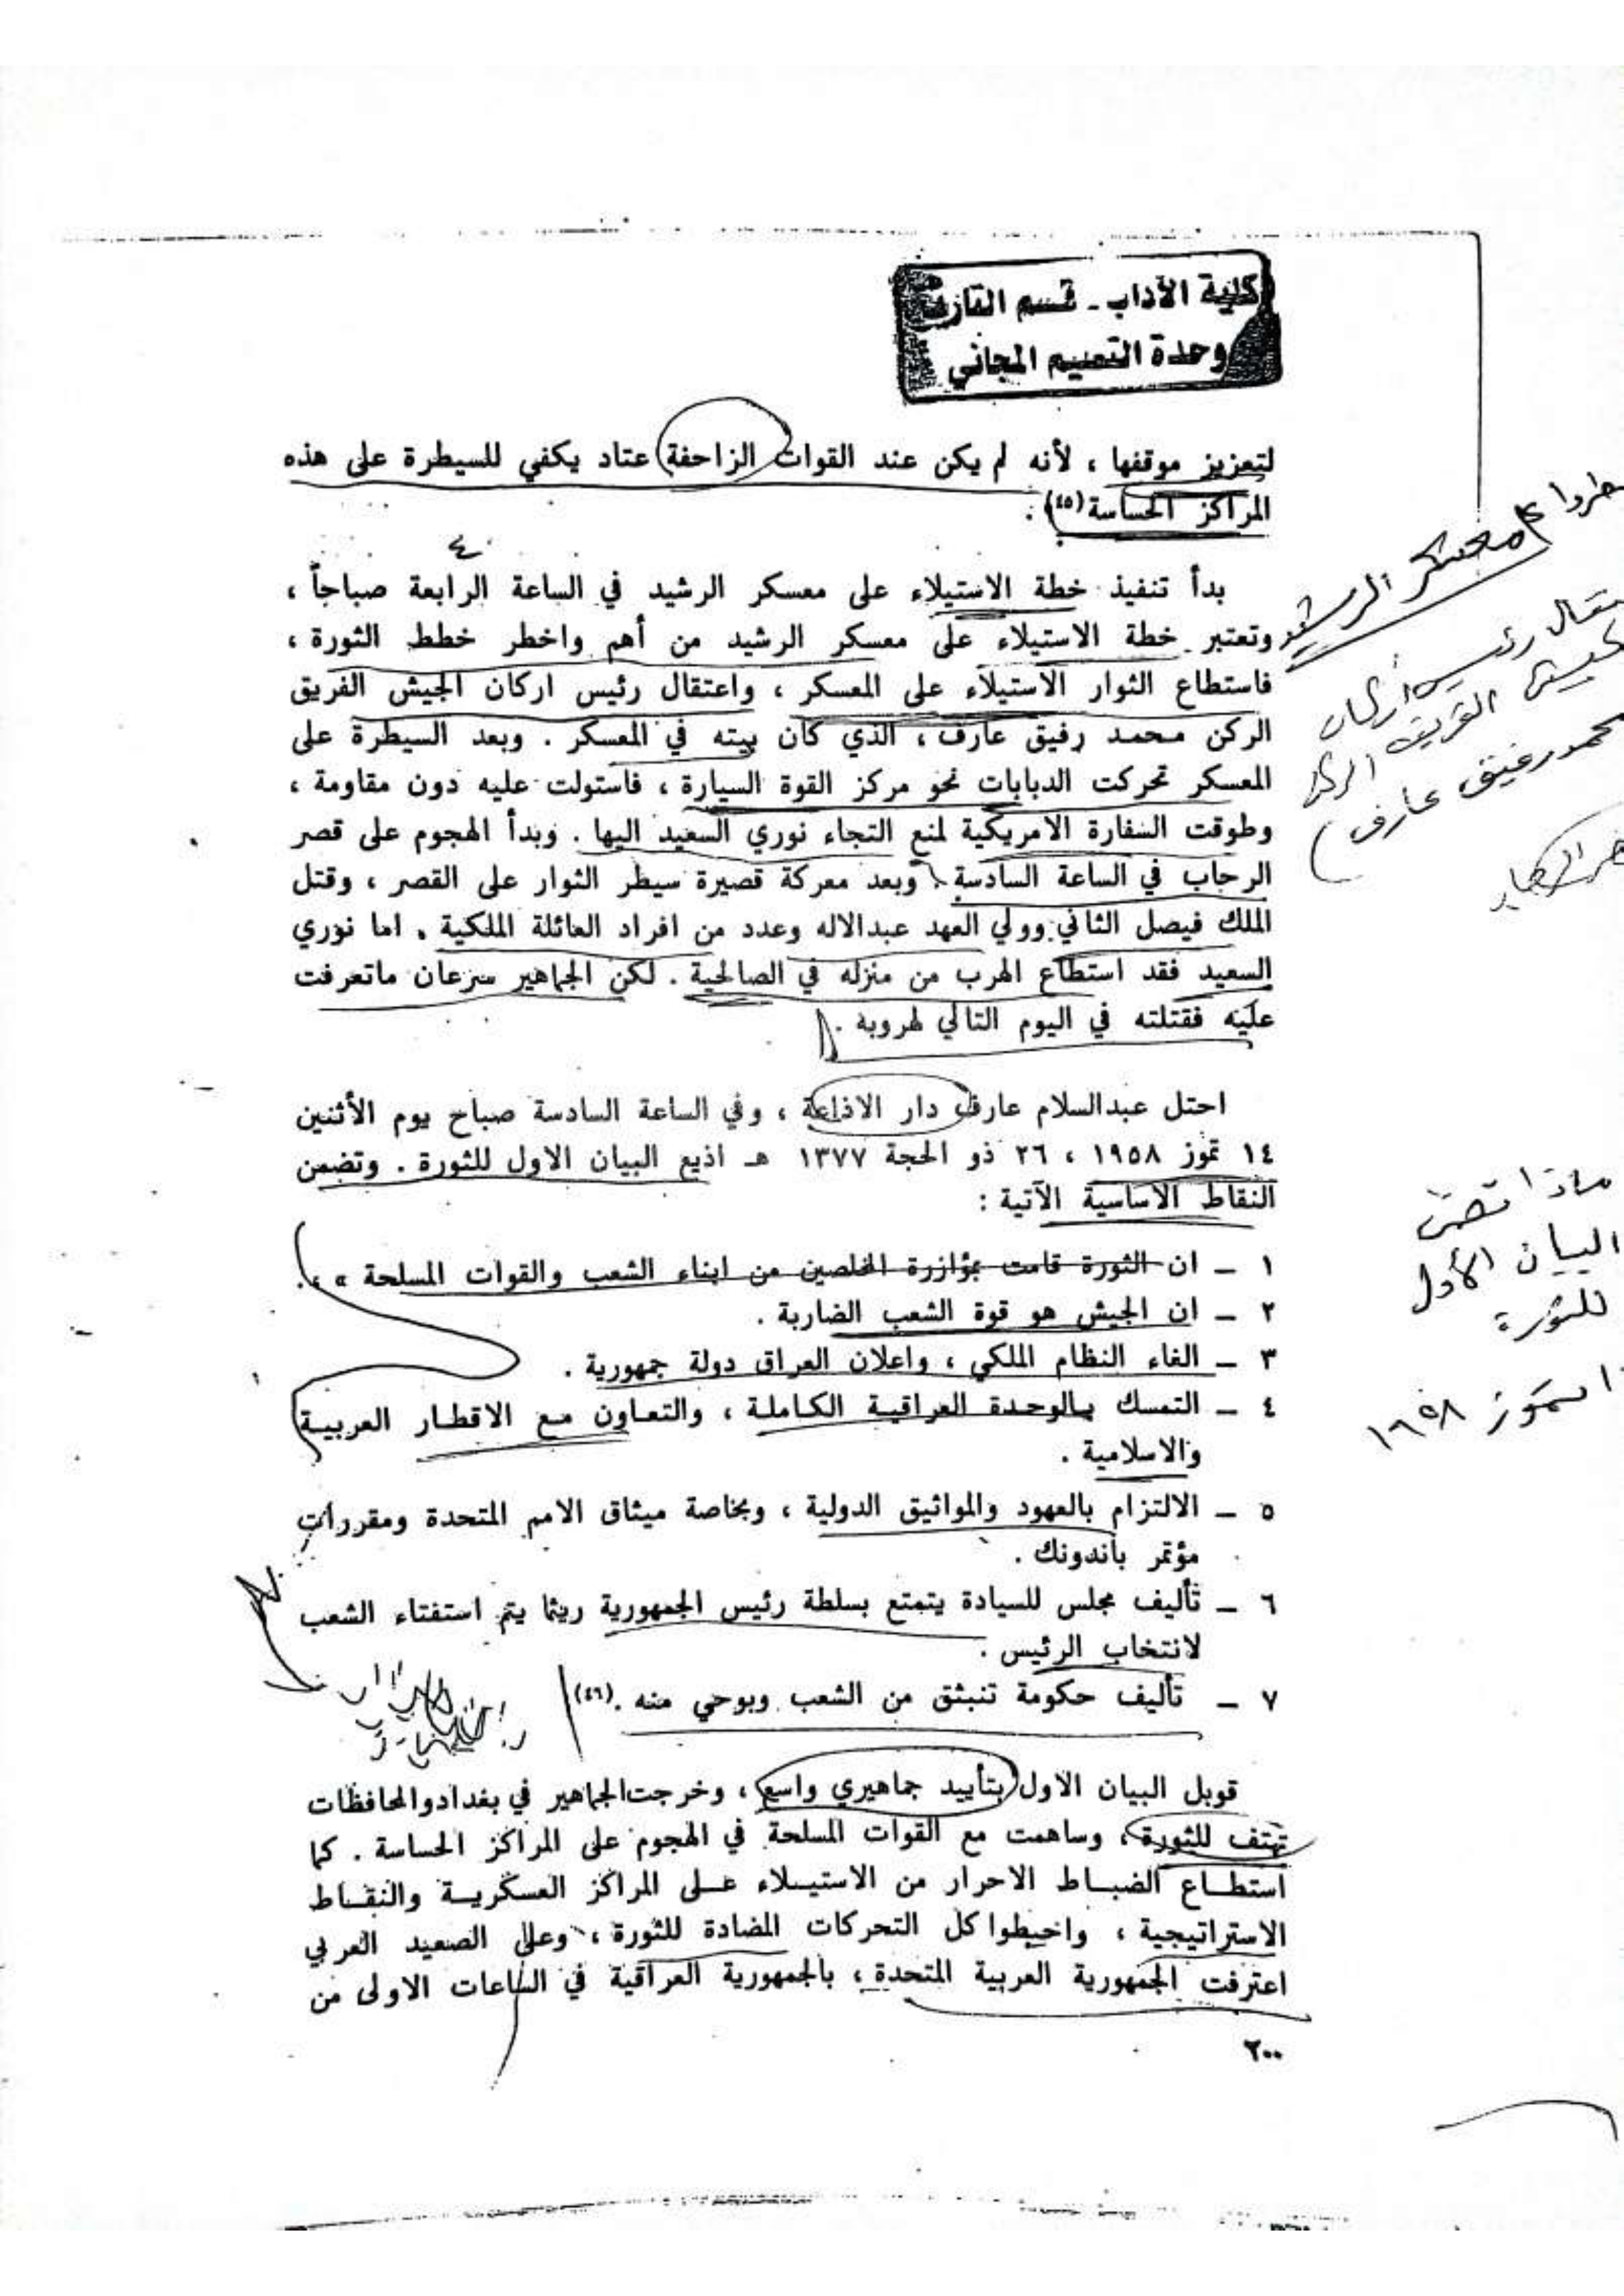 كلية الآداب - قسم التاريخ
وحدة التعييم المجاني
لتعزيز موقفها ، لأنه لم يكن عند القوات الزاحفة عتاد يكفي للسيطرة على هذه
المراكز الحساسة (٤٥) .
٤
بدأ تنفيذ خطة الاستيلاء على معسكر الرشيد في الساعة الرابعة صباحاً ،
وتعتبر خطة الاستيلاء على معسكر الرشيد من أهم واخطر خطط الثورة ،
فاستطاع الثوار الاستيلاء على المعسكر ، واعتقال رئيس اركان الجيش الفريق
الركن محمد رفيق عارف ، الذي كان بيته في المعسكر . وبعد السيطرة على
المعسكر تحركت الدبابات نحو مركز القوة السيارة ، فاستولت عليه دون مقاومة ،
وطوقت السفارة الامريكية لمنع التجاء نوري السعيد اليها . وبدأ الهجوم على قصر
الرحاب في الساعة السادسة . وبعد معركة قصيرة سيطر الثوار على القصر ، وقتل
الملك فيصل الثاني وولي العهد عبدالاله وعدد من افراد العائلة الملكية . اما نوري
السعيد فقد استطاع الهرب من منزله في الصالحية . لكن الجماهير سرعان ماتعرفت
عليه فقتلته في اليوم التالي لهروبه .
احتل عبدالسلام عارف دار الاذاعة ، وفي الساعة السادسة صباح يوم الأثنين
١٤ تموز ١٩٥٨ ، ٢٦ ذو الحجة ١٣٧٧ هـ اذيع البيان الاول للثورة . وتضمن
النقاط الاساسية الآتية :
١ ــ ان الثورة قامت بمؤازرة المخلصين من ابناء الشعب والقوات المسلحة » .
٢ ــ ان الجيش هو قوة الشعب الضاربة .
٣ ــ الغاء النظام الملكي ، واعلان العراق دولة جمهورية .
٤ ــ التمسك بالوحدة العراقية الكاملة ، والتعاون مع الاقطار العربية
والاسلامية .
٥ ــ الالتزام بالعهود والمواثيق الدولية ، وبخاصة ميثاق الامم المتحدة ومقررات
مؤتمر باندونك .
٦ ــ تأليف مجلس للسيادة يتمتع بسلطة رئيس الجمهورية ريثما يتم استفتاء الشعب
لانتخاب الرئيس .
٧ ــ تأليف حكومة تنبثق من الشعب وبوحي منه . (٤٦)
قوبل البيان الاول بتأييد جماهيري واسع ، وخرجت الجماهير في بغداد والمحافظات
تهتف للثورة ، وساهمت مع القوات المسلحة في الهجوم على المراكز الحساسة . كما
استطاع الضباط الاحرار من الاستيلاء على المراكز العسكرية والنقاط
الاستراتيجية ، واحبطوا كل التحركات المضادة للثورة ، وعلى الصعيد العربي
اعترفت الجمهورية العربية المتحدة ، بالجمهورية العراقية في الساعات الاولى من
٢٠٠
معسكر الرشيد
رئيس أركان
الفريق الركن
محمد رفيق عارف )
ماذا تضمن
البيان الأول
للثورة
تموز ١٩٥٨